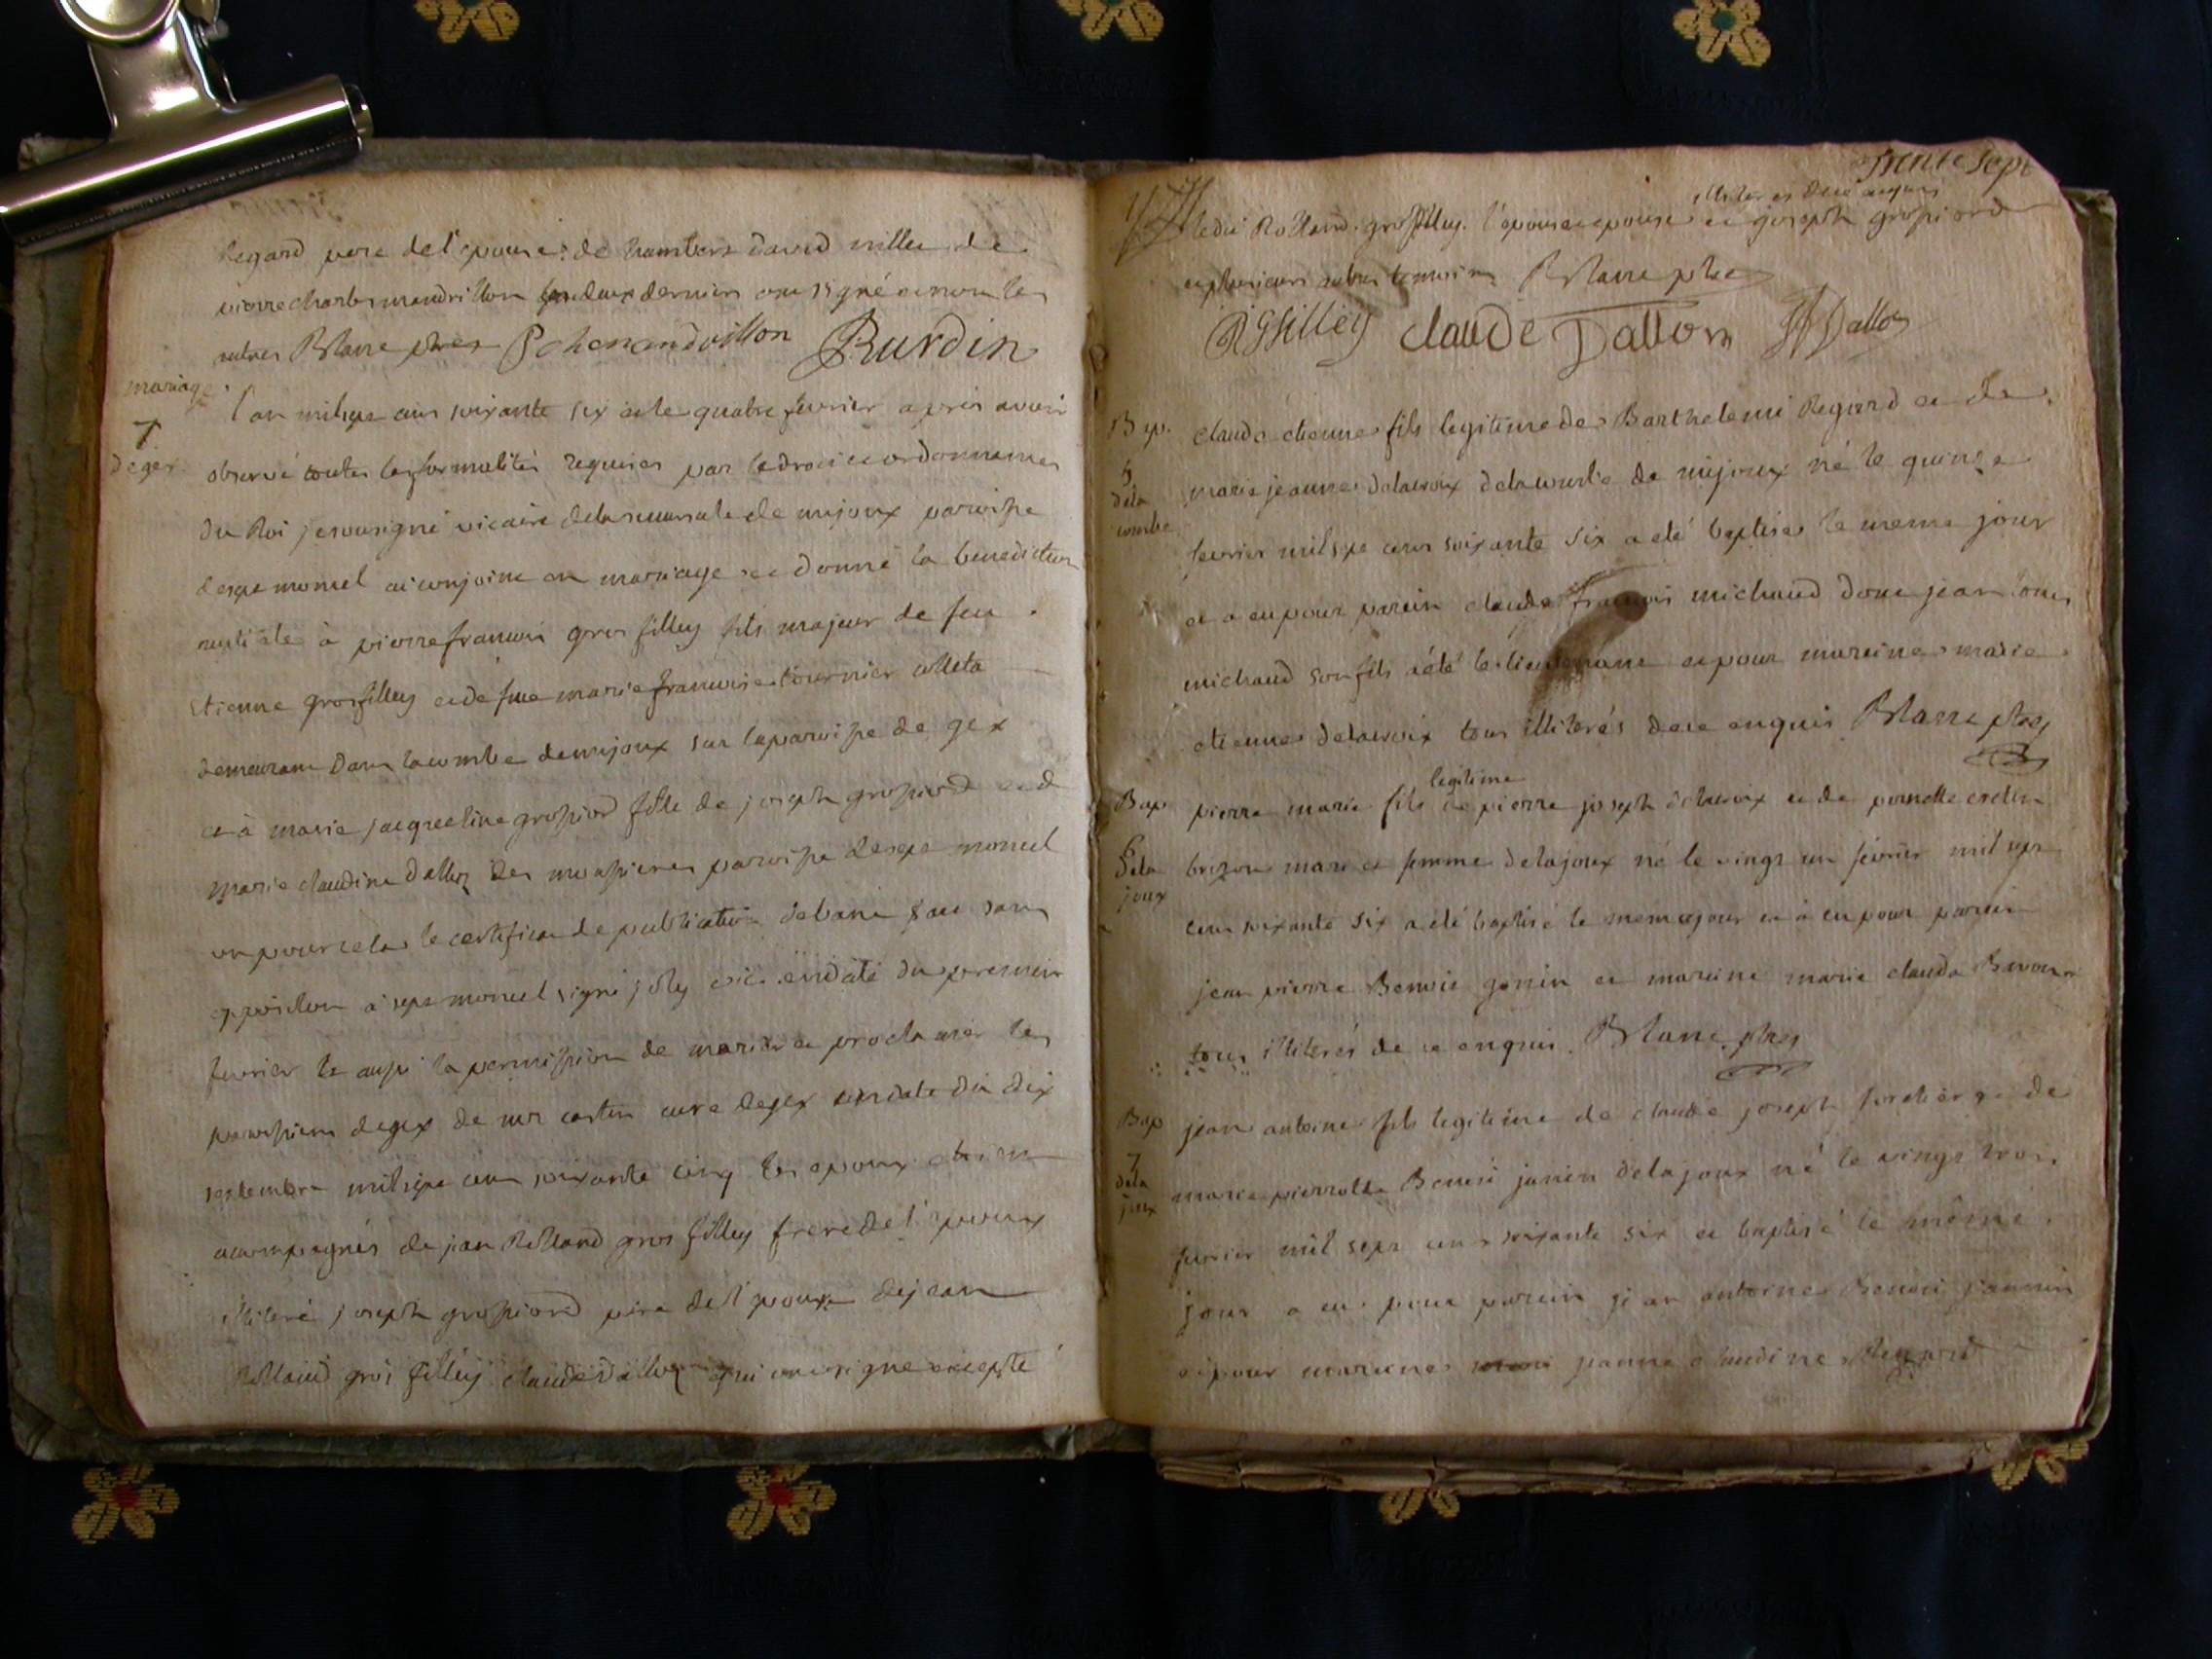 Regard pere de l'epouse: de humbert david millet de
pierre charles mandrillon les deux dernier ont signé et non les
autres Blanc ptre Pchmandrillon Burdin
mariage
7
de gex
l'an mil sept cent soixante six et le quatre fevrier apres avoir
observé toutes les formalités requises par le droit et ordonnances
du Roi je sousigné vicaire de la succursale de mijoux paroisse
de sept moncel ai conjoint en mariage et donné la benediction
nuptiale à pierre francois gros filley fils majeur de feu
etienne grosfilley et de feue marie francoise tournier colleta
demeurant dans la combe de mijoux sur la paroisse de gex
et à marie jacqueline grossiord fille de joseph grossiord et d
marie claudine dalloz des moussieres paroisse de sept moncel
vu pour cela le certificat de publication de bans fait sans
opposition à sept moncel signé joly vic. en date du premier
fevrier vu aussi la permission de marier et proclamer les
paroissiens de gex de mr castin curé de gex en date du dix
septembre mil sept cent soixante cinq les epoux etoient
acompagnés de jean Rolland gros filley frere de l'epoux
illiteré joseph grossiord pere de l'epouse de jean
Rolland gros filley claude dalloz qui ont signé excepté
trente sept
illiteres de ce enquis
ledit Rolland grosfilley l'epoux epouse et joseph grossiord
et plusieurs autres temoins Blanc ptre
claude Dalloz Dalloz
Bap.
5
de la
combe
claude etienne fils legitime de Barthelemi Regard et de
marie jeanne delacroix de la combe de mijoux né le quinze
fevrier mil sept cent soixante six a eté baptisé le meme jour
et a eu pour parein claude francois michaud dont jean louis
michaud son fils a eté le lieutenant et pour mareine marie
etienne delacroix tous illiterés de ce enquis Blanc ptre
Bap
6
de la
joux
legitime
pierre marie fils de pierre joseph delacroix et de pernette
brizon mari et femme de la joux né le vingt un fevrier mil sept
cent soixante six a eté baptisé le meme jour et a eu pour parein
jean pierre Benoit gonin et mareine marie claude Benoit
tous illiterés de ce enquis. Blanc ptre
Bap
7
de la
joux
jean antoine fils legitime de claude joseph et de
marie pierrotte Benoit janin de la joux né le vingt trois
fevrier mil sept cent soixante six et baptisé le même
jour a eu pour parein jean antoine Benoit jannin
et pour mareine jeanne claudine Regard